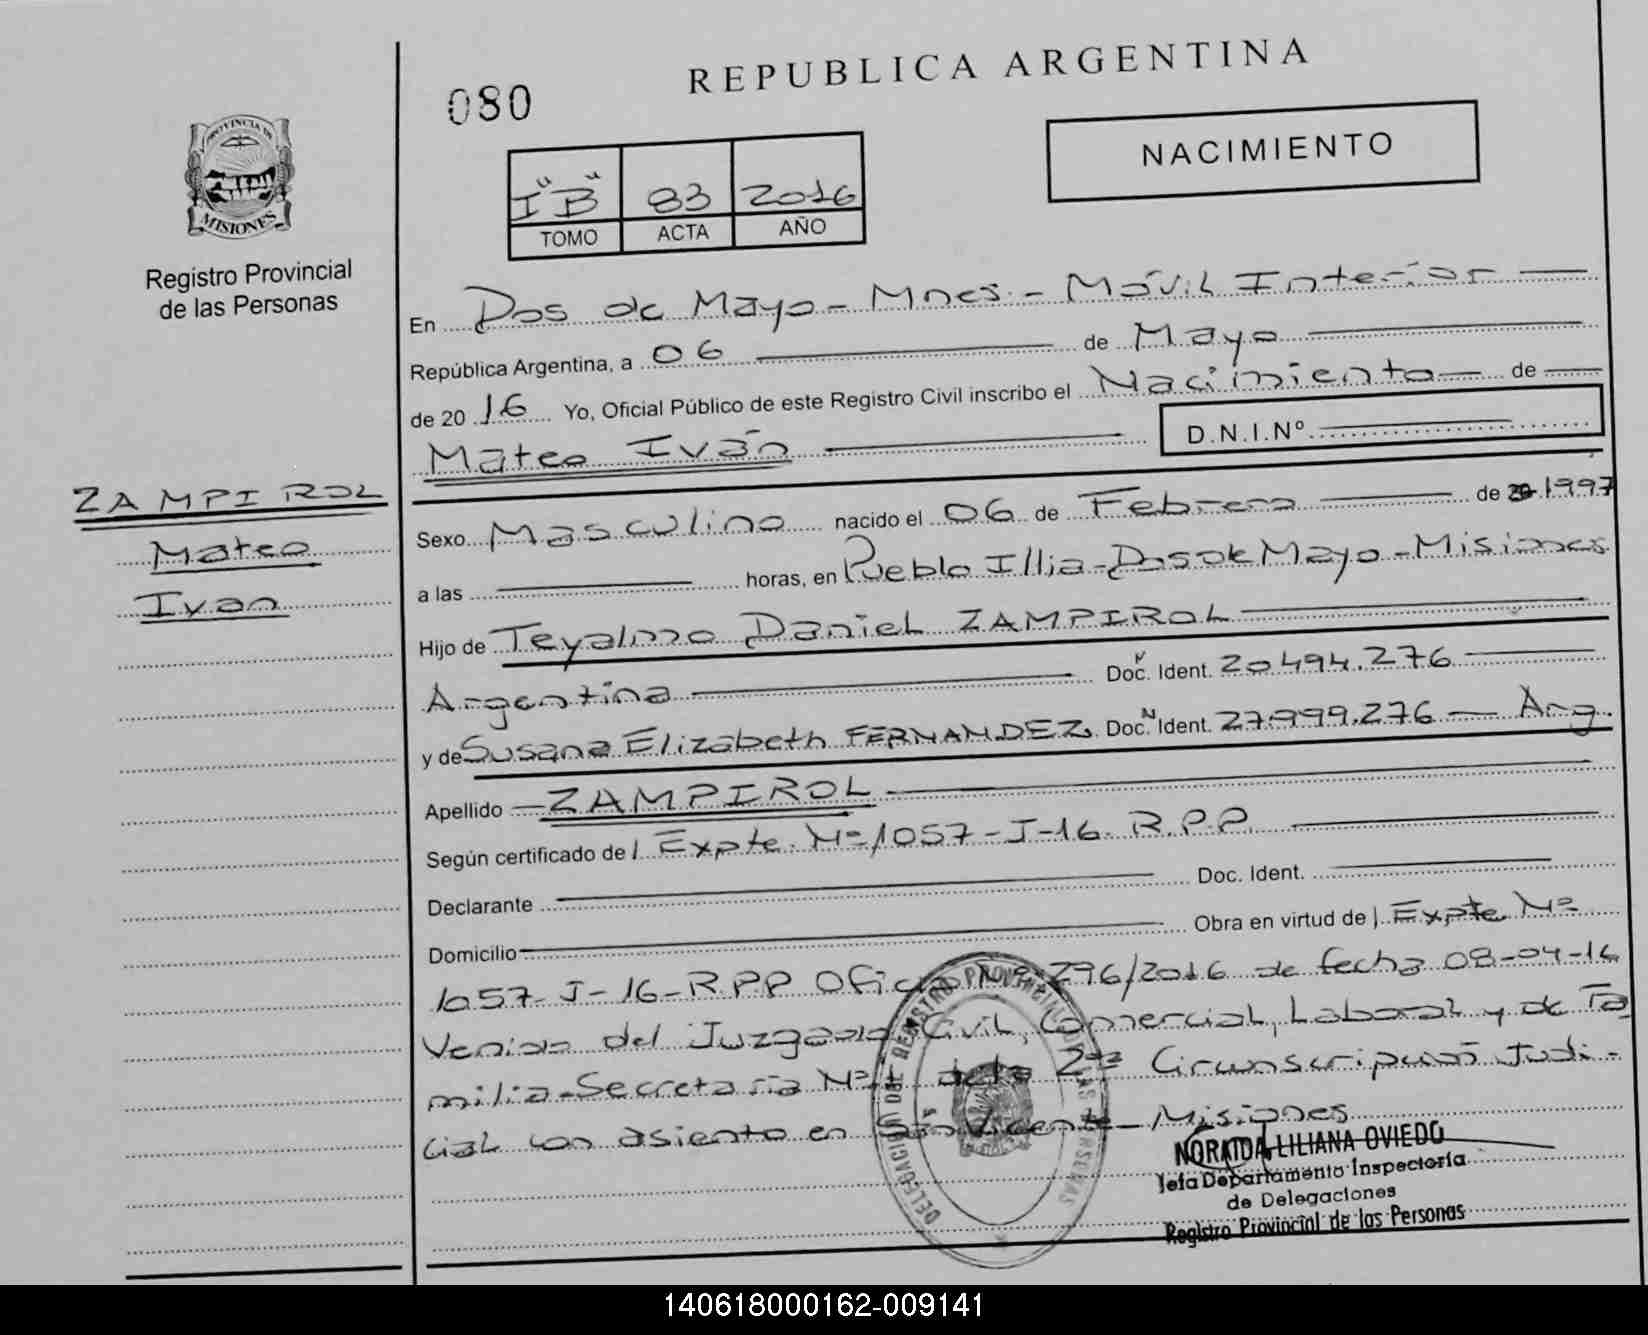 REPUBLICA ARGENTINA
080
NACIMIENTO
PROVINCIA DE
MISIONES
Registro Provincial
de las Personas
I "B" 83 2016
TOMO ACTA AÑO
En Dos de Mayo - Mnes. - Móvil Interior
República Argentina, a 06 de Mayo
de 20 16 Yo, Oficial Público de este Registro Civil inscribo el Nacimiento de
Mateo Iván D.N.I.Nº
ZAMPIROL
Mateo
Ivan
Sexo Masculino nacido el 06 de Febrero de 1997
a las horas, en Pueblo Illia - Dos de Mayo - Misiones
Hijo de Teyalmo Daniel ZAMPIROL
Argentina Doc. Ident. 20.494.276
y de Susana Elizabeth FERNANDEZ Doc. Ident. 27.999.276 - Arg.
Apellido ZAMPIROL
Según certificado de Expte. Nº 1057-J-16 R.P.P.
Declarante Doc. Ident.
Domicilio Obra en virtud de Expte Nº
1057-J-16-R.P.P Oficio Nº 296/2016 de fecha 08-04-16
Venido del Juzgado Civil, Comercial, Laboral y de Fa
milia - Secretaría Nº 1 de la 2da Circunscripción Judi-
cial con asiento en San Vicente - Misiones
DELEGACION DEL REGISTRO PROVINCIAL DE LAS PERSONAS
NORAIDA LILIANA OVIEDO
Jefa Departamento Inspectoría
de Delegaciones
Registro Provincial de las Personas
140618000162-009141